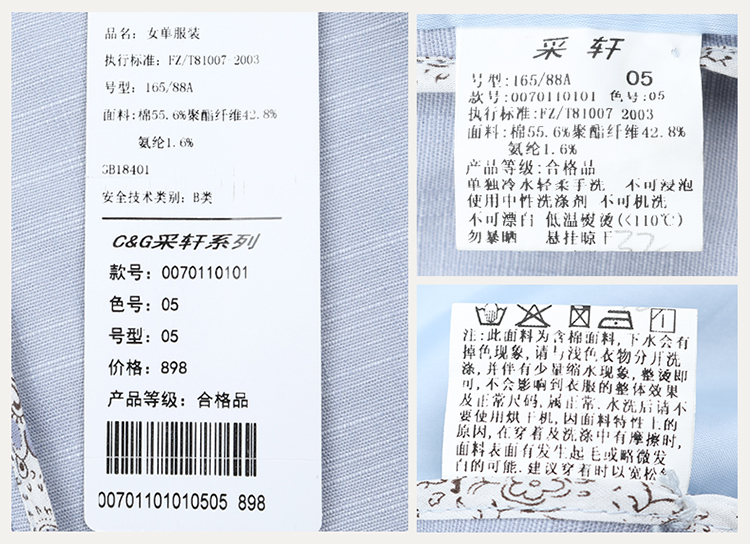 品名: 女单服装
执行标准: FZ/T81007-2003
号型: 165/88A
面料:棉55.6%聚酯纤维42.8%
氨纶1.6%
GB18401
安全技术类别: B类
C&G采轩系列
款号: 0070110101
色号: 05
号型: 05
价格: 898
产品等级: 合格品
00701101010505 898
采 轩
号型:165/88A 05
款号:0070110101 色号:05
执行标准:FZ/T81007 2003
面料:棉55.6%聚酯纤维42.8%
氨纶1.6%
产品等级:合格品
单独冷水轻柔手洗 不可浸泡
使用中性洗涤剂 不可机洗
不可漂白 低温熨烫(<110℃)
勿暴晒 悬挂晾干
注:此面料为含棉面料,下水会有
掉色现象,请与浅色衣物分开洗
涤,并伴有少量缩水现象,整烫即
可,不会影响到衣服的整体效果
及正常尺码,属正常.水洗后请不
要使用烘干机,因面料特性上的
原因,在穿着及洗涤中有摩擦时,
面料表面有发生起毛或略微发
白的可能.建议穿着时以宽松